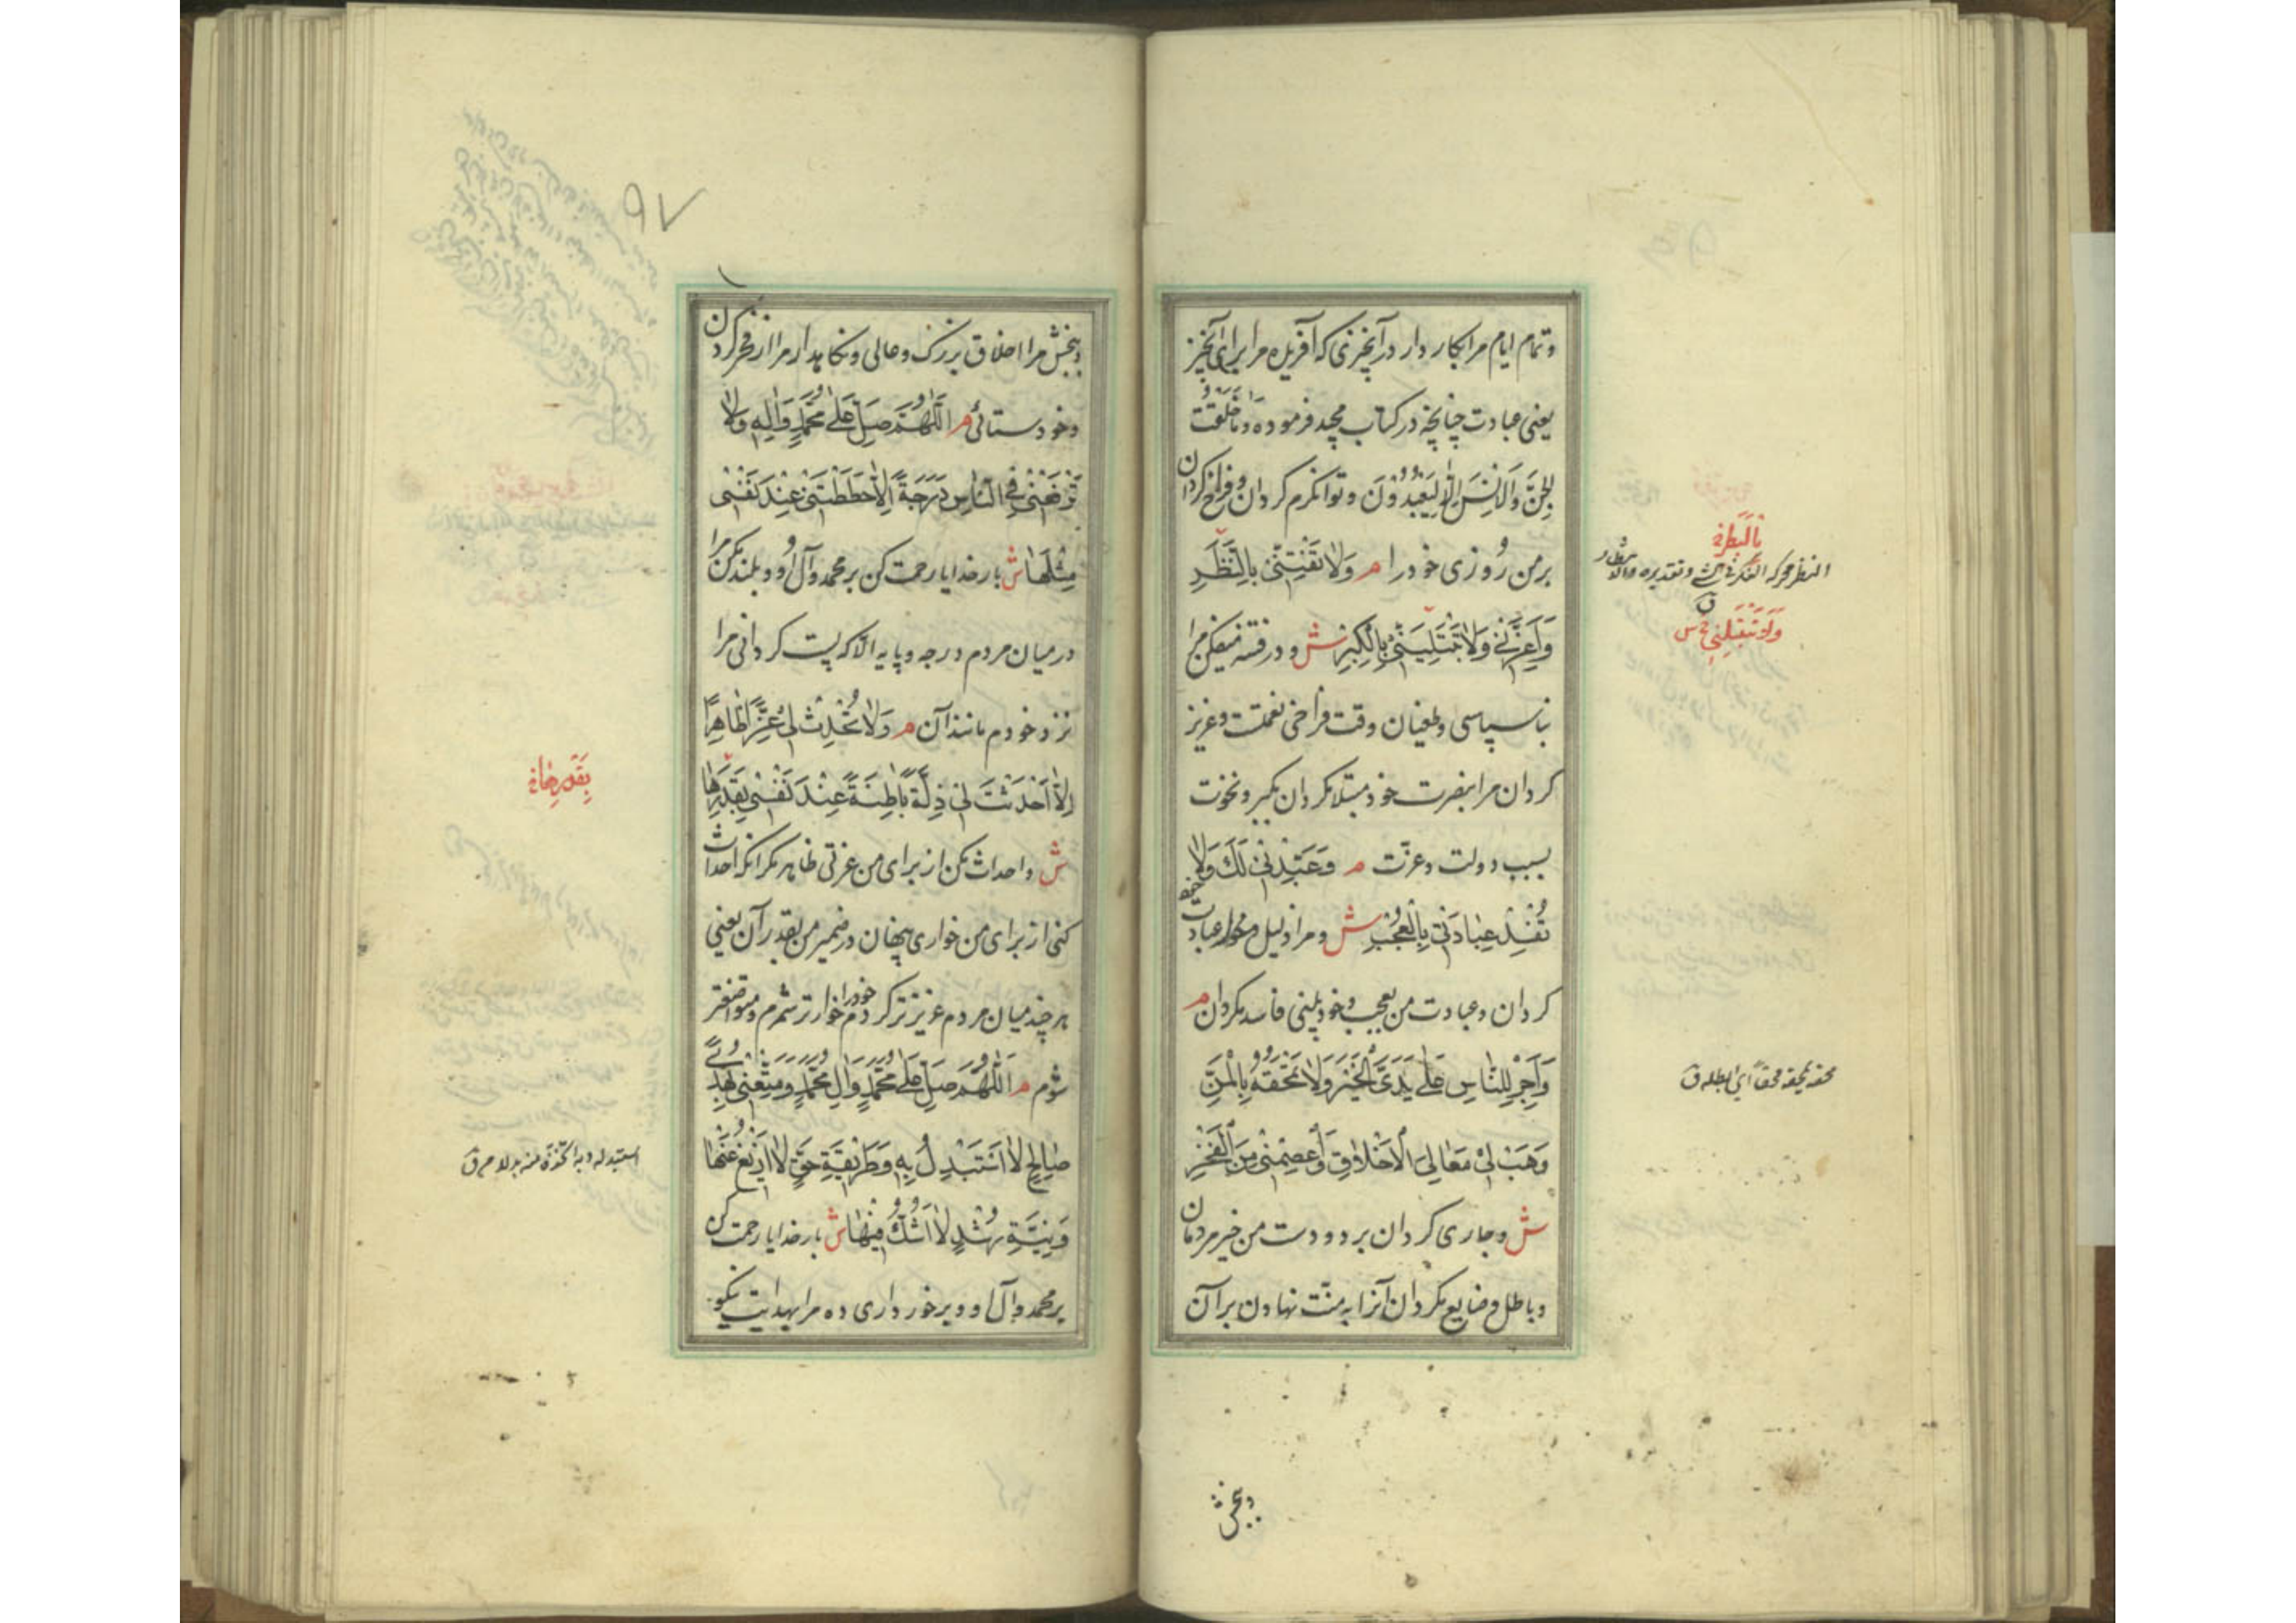 وتمام ایام مرا بکار دار در آنچیزی که آفریده مرا برای آنچیز
یعنی عبادت چنانچه در کتاب مجید فرموده وَمَا خَلَقْتُ
الْجِنَّ وَالْاِنْسَ اِلّٰا لِيَعْبُدُوْنَ و توانکرم کردان و فراخ کردان
بر من روزی خود را م وَلٰا تَفْتِنّٖى بِالنَّظَرِ
وَاَعِزَّنٖى وَلٰا تَبْتَلِيَنّٖى بِالْكِبْرِ ش و در فتنه میفکن مرا
بناسپاسی و طغیان وقت فراخی نعمت و عزیز
کردان مرا بنصرت خود و مبتلا مکردان بکبر و نخوت
بسبب دولت و عزّت م وَعَبِّدْنٖى لَكَ وَلٰا
تُفْسِدْ عِبٰادَتٖى بِالْعُجْبِ ش و مرا ذلیل عبادت خود
کردان و عبادت من بعجب و خودبینی فاسد مکردان م
وَاَجْرِ لِلنّٰاسِ عَلٰى يَدَىَّ الْخَيْرَ وَلٰا تَمْحَقْهُ بِالْمَنِّ
وَهَبْ لٖى مَعٰالِىَ الْاَخْلٰاقِ وَاعْصِمْنٖى مِنَ الْفَخْرِ
ش و جاری کردان بر دو دست من خیر مردمان
و باطل و ضایع مکردان آنرا به منّت نهادن بر آن
وبخش
بِالْبَطَرِ
النظر محركه الفكر فى الشئ و تقديره
ق
وَلَا تَبْتَلِنِي س
محقه يمحقه محقاً اي ابطله ق
۹۷
وببخش مرا اخلاق بزرک و عالی و نکاهدار مرا از فخر کردن
و خودستائی م اَللّٰهُمَّ صَلِّ عَلٰى مُحَمَّدٍ وَاٰلِهٖ وَلٰا
تَرْفَعْنٖى فِى النّٰاسِ دَرَجَةً اِلّٰا حَطَطْتَنٖى عِنْدَ نَفْسٖى
مِثْلَهٰا ش بار خدایا رحمت کن بر محمد و آل او و بلند مکن مرا
در میان مردم درجه و پایه الّا که پست کردانی مرا
نزد خودم مانند آن م وَلٰا تُحْدِثْ لٖى عِزًّا ظٰاهِرًا
اِلّٰا اَحْدَثْتَ لٖى ذِلَّةً بٰاطِنَةً عِنْدَ نَفْسٖى بِقَدَرِهٰا
ش و احداث مکن از برای من عزتی ظاهر مکر آنکه احداث
کنی از برای من خواری پنهان در ضمیر من بقدر آن یعنی
هر چند میان مردم عزیزتر کردم خود را خوارتر شمرم و متواضعتر
شوم م اَللّٰهُمَّ صَلِّ عَلٰى مُحَمَّدٍ وَاٰلِ مُحَمَّدٍ وَمَتِّعْنٖى بِهُدًى
صٰالِحٍ لٰا اَسْتَبْدِلُ بِهٖ وَطَرٖيقَةِ حَقٍّ لٰا اَزٖيغُ عَنْهٰا
وَنِيَّةِ رُشْدٍ لٰا اَشُكُّ فٖيهٰا ش بار خدایا رحمت کن
بر محمد و آل او و برخورداری ده مرا بهدایت نیکو
بِقَدْرِهَا
استبدله و به اتخذ منه بدلا ق